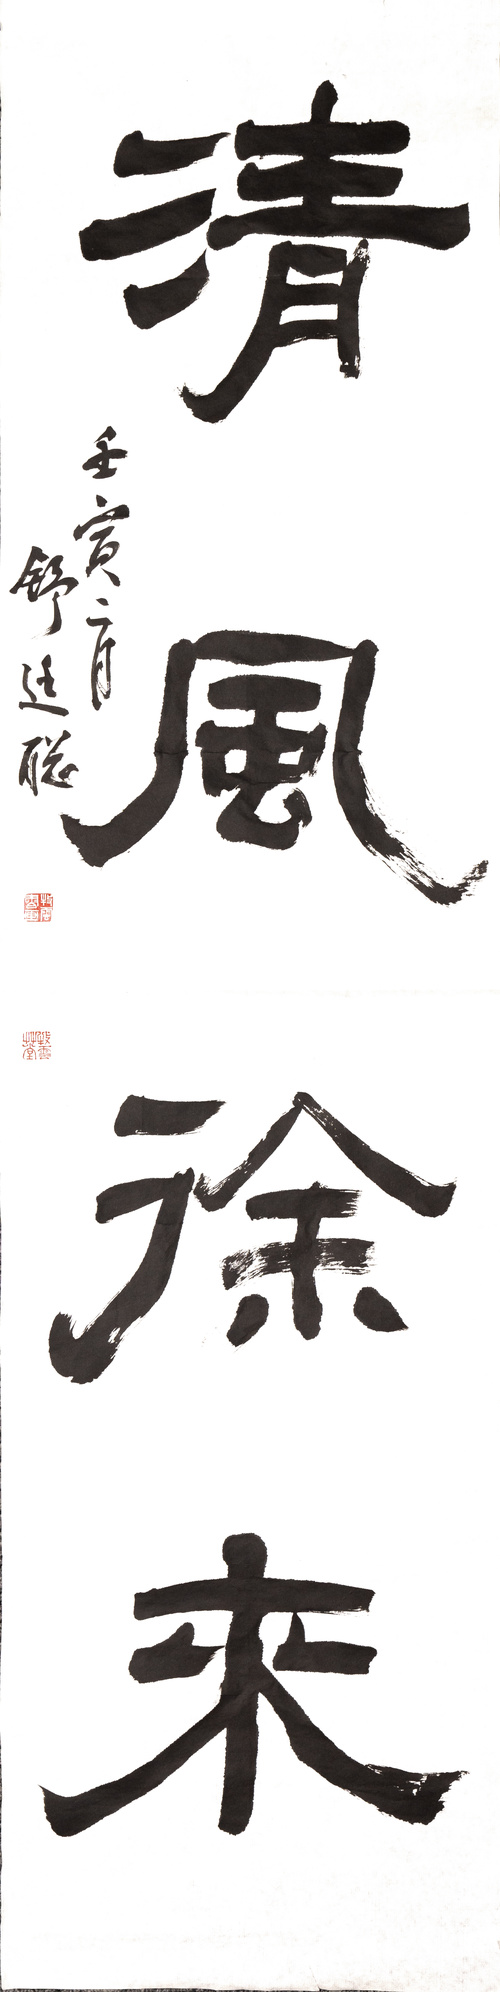 清風徐來
壬寅二月
舒廷聪